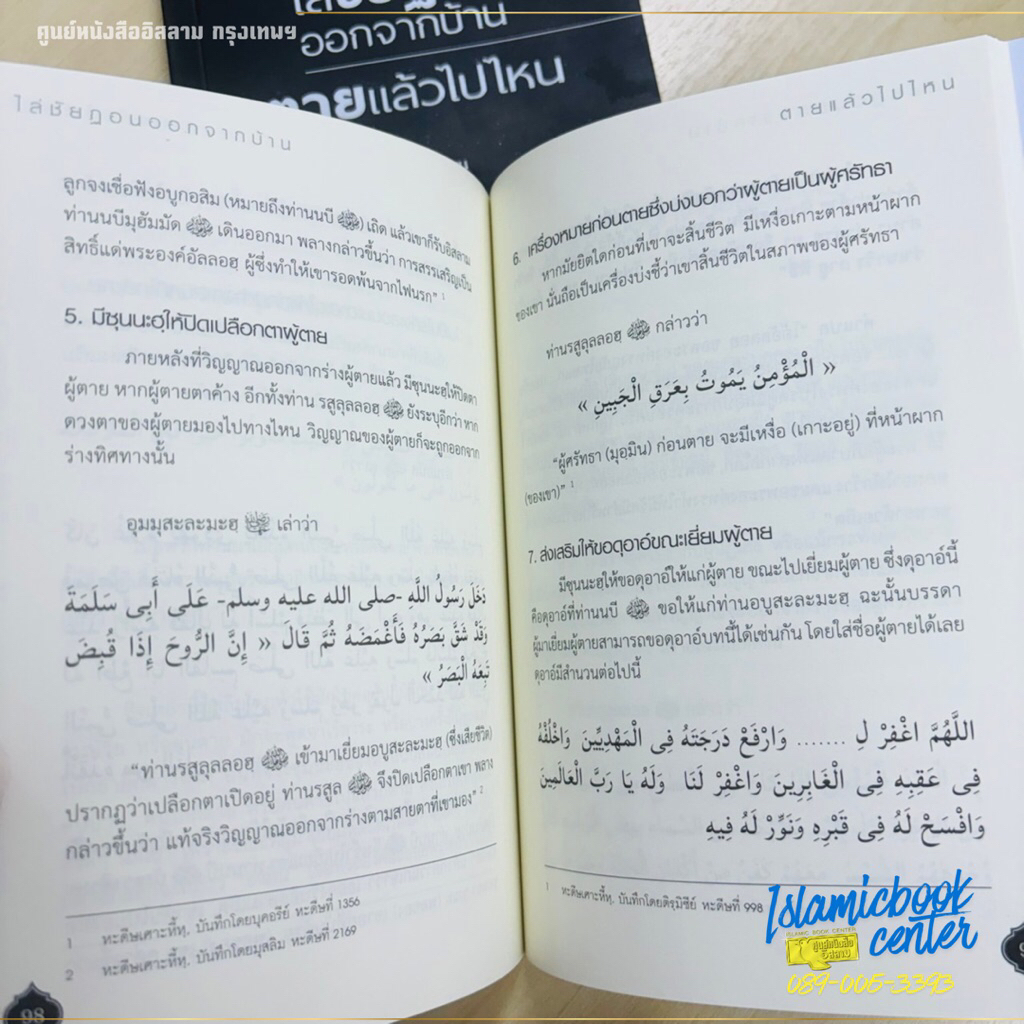 ศูนย์หนังสืออิสลาม กรุงเทพฯ
ออกจากบ้าน
ตายแล้วไปไหน
ไล่ชัยฏอนออกจากบ้าน
ลูกจงเชื่อฟังอบูกอสิม (หมายถึงท่านนบี ﷺ) เถิด แล้วเขาก็รับอิสลาม
ท่านนบีมุฮัมมัด ﷺ เดินออกมา พลางกล่าวขึ้นว่า การสรรเสริญเป็น
สิทธิ์แด่พระองค์อัลลอฮฺ ผู้ซึ่งทำให้เขารอดพ้นจากไฟนรก" 1
5. มีซุนนะฮฺให้ปิดเปลือกตาผู้ตาย
ภายหลังที่วิญญาณออกจากร่างผู้ตายแล้ว มีซุนนะฮฺให้ปิดตา
ผู้ตาย หากผู้ตายตาค้าง อีกทั้งท่าน รสูลุลลอฮฺ ﷺ ยังระบุอีกว่า หาก
ดวงตาของผู้ตายมองไปทางไหน วิญญาณของผู้ตายก็จะถูกออกจาก
ร่างทิศทางนั้น
อุมมุสะละมะฮฺ เล่าว่า
دَخَلَ رَسُولُ اللَّهِ -صلى الله عليه وسلم- عَلَى أَبِى سَلَمَةَ
وَقَدْ شَقَّ بَصَرُهُ فَأَغْمَضَهُ ثُمَّ قَالَ « إِنَّ الرُّوحَ إِذَا قُبِضَ
تَبِعَهُ الْبَصَرُ »
"ท่านรสูลุลลอฮฺ ﷺ เข้ามาเยี่ยมอบูสะละมะฮฺ (ซึ่งเสียชีวิต)
ปรากฏว่าเปลือกตาเปิดอยู่ ท่านรสูล ﷺ จึงปิดเปลือกตาเขา พลาง
กล่าวขึ้นว่า แท้จริงวิญญาณออกจากร่างตามสายตาที่เขามอง" 2
1 หะดีษเศาะหี้หฺ. บันทึกโดยบุคอรีย์ หะดีษที่ 1356
2 หะดีษเศาะหี้หฺ. บันทึกโดยมุสลิม หะดีษที่ 2169
98
ตายแล้วไปไหน
6. เครื่องหมายก่อนตายซึ่งบ่งบอกว่าผู้ตายเป็นผู้ศรัทธา
หากมัยยิตใดก่อนที่เขาจะสิ้นชีวิต มีเหงื่อเกาะตามหน้าผาก
ของเขา นั่นถือเป็นเครื่องบ่งชี้ว่าเขาสิ้นชีวิตในสภาพของผู้ศรัทธา
ท่านรสูลุลลอฮฺ ﷺ กล่าวว่า
« الْمُؤْمِنُ يَمُوتُ بِعَرَقِ الْجَبِينِ »
"ผู้ศรัทธา (มุอฺมิน) ก่อนตาย จะมีเหงื่อ (เกาะอยู่) ที่หน้าผาก
(ของเขา)" 1
7. ส่งเสริมให้ขอดุอาอ์ขณะเยี่ยมผู้ตาย
มีซุนนะฮฺให้ขอดุอาอ์ให้แก่ผู้ตาย ขณะไปเยี่ยมผู้ตาย ซึ่งดุอาอ์นี้
คือดุอาอ์ที่ท่านนบี ﷺ ขอให้แก่ท่านอบูสะละมะฮฺ ฉะนั้นบรรดา
ผู้มาเยี่ยมผู้ตายสามารถขอดุอาอ์บทนี้ได้เช่นกัน โดยใส่ชื่อผู้ตายได้เลย
ดุอาอ์มีสำนวนต่อไปนี้
اللَّهُمَّ اغْفِرْ لِ ....... وَارْفَعْ دَرَجَتَهُ فِى الْمَهْدِيِّينَ وَاخْلُفْهُ
فِى عَقِبِهِ فِى الْغَابِرِينَ وَاغْفِرْ لَنَا وَلَهُ يَا رَبَّ الْعَالَمِينَ
وَافْسَحْ لَهُ فِى قَبْرِهِ وَنَوِّرْ لَهُ فِيهِ
1 หะดีษเศาะหี้หฺ. บันทึกโดยติรฺมิซีย์ หะดีษที่ 998
Islamicbook
center
ISLAMIC BOOK CENTER
ศูนย์หนังสือ
อิสลาม
089-005-3393